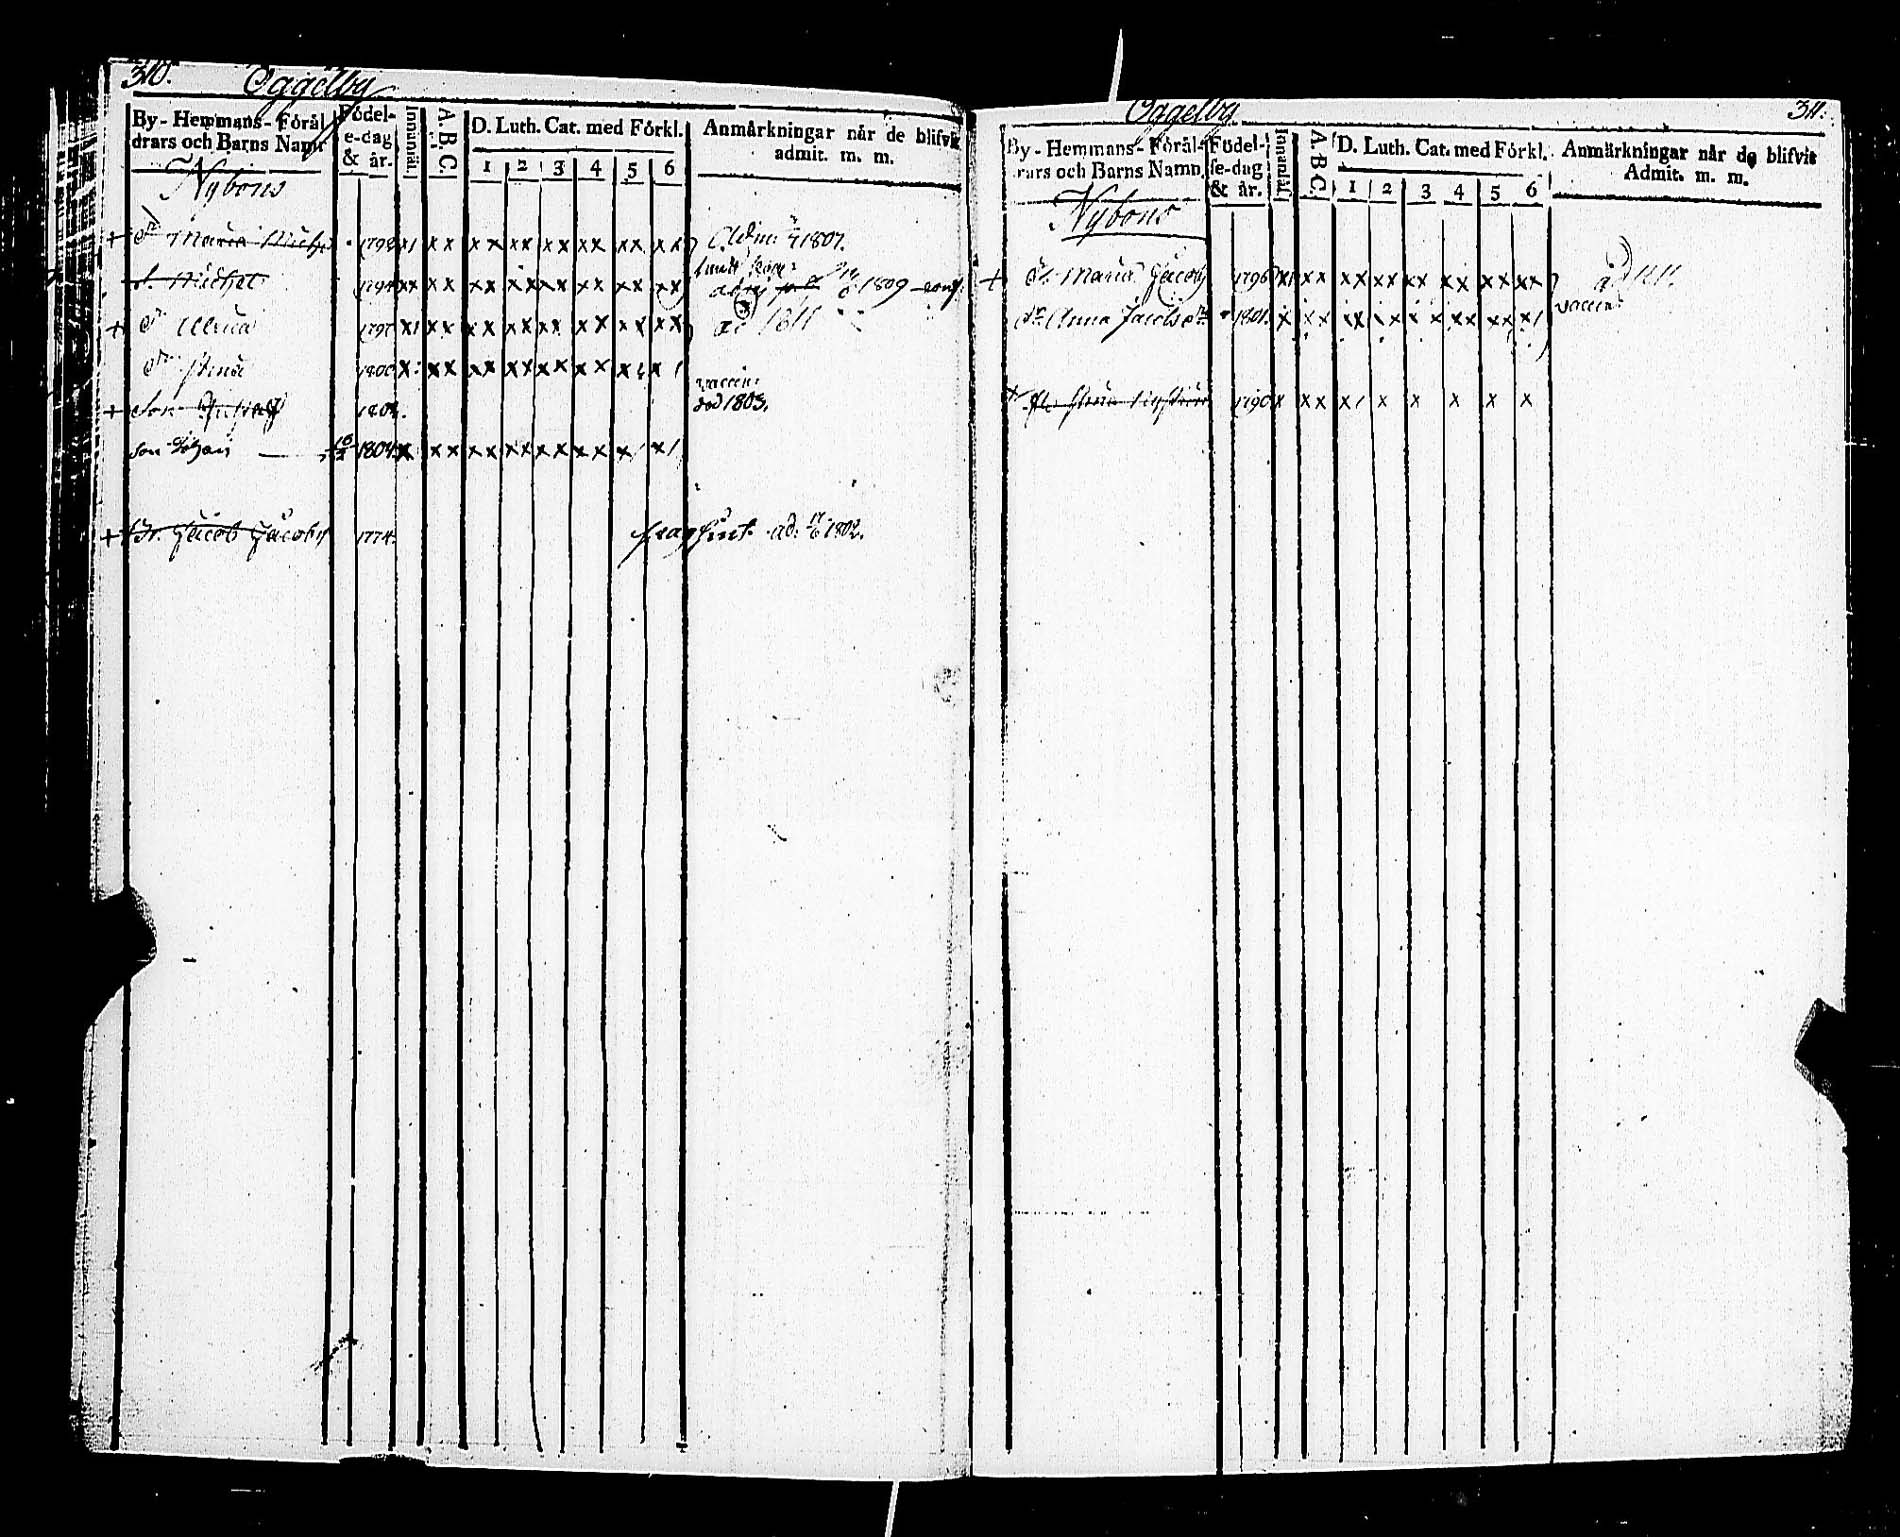 310.
Oggelby
By-Hemmans-Föräl
drars och Barns Namn
Födel-
e-dag
& år.
Innanläs.
A.B.C.
D. Luth. Cat. med Förkl.
1 2 3 4 5 6
Anmärkningar när de blifvit
admit. m. m.
Nybons
+ Dr Maria Miche 1792 x1 xx xx xx xx xx xx xx 1807.
s. Michel 1794 xx xx xx xx xx xx xx xx 1809
+ Dr Ulrica 1797 x1 xx xx xx xx xx xx xx ad 1811
Dr Stina 1800 x xx xx xx xx xx x x 1
+ Son Gustaf 1802. vaccin:
död 1803.
Son Johan 1804 x xx xx xx xx xx x1 x1
+ Br. Jacob Jacobs 1774. ad: 1802.
Oggelby
311.
By-Hemmans-Föräl-
rars och Barns Namn
Födel-
se-dag
& år.
Innanläs.
A.B.C.
D. Luth. Cat. med Förkl.
1 2 3 4 5 6
Anmärkningar när de blifvit
Admit. m. m.
Nybons
+ Maria Jacobs 1796 x1 xx xx xx xx xx xx xx ad 1811.
Dr Anna Jacobs dr 1801. x xx xx xx xx xx xx x1 vaccin:
+ Stina 1790 x xx x1 x x x x x